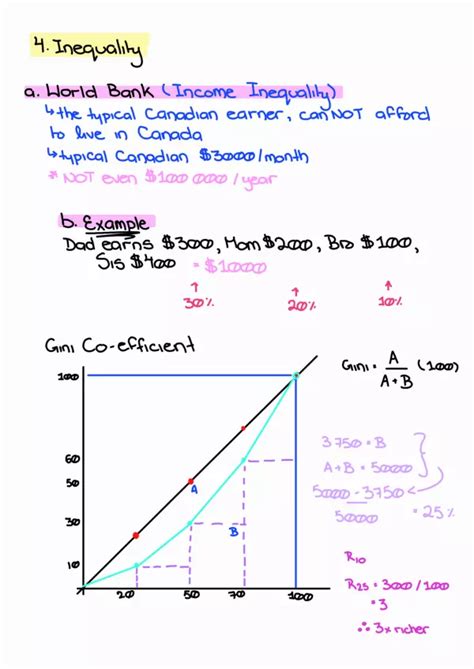 4. Inequality
a. World Bank (Income Inequality)
↳ the typical Canadian earner, can NOT afford
to live in Canada
↳ typical Canadian $3000/month
* NOT even $100 000 / year
b. Example
Dad earns $300, Mom $200, Bro $100,
Sis $400 = $1000
30% 20% 10%
Gini Co-efficient
Gini = A / A+B (100)
100
60
50
30
10
A
B
20 50 70 100
3750 = B
A+B = 5000
5000 - 3750
5000
= 25%
R10
R25 = 300 / 100
= 3
∴ 3x richer